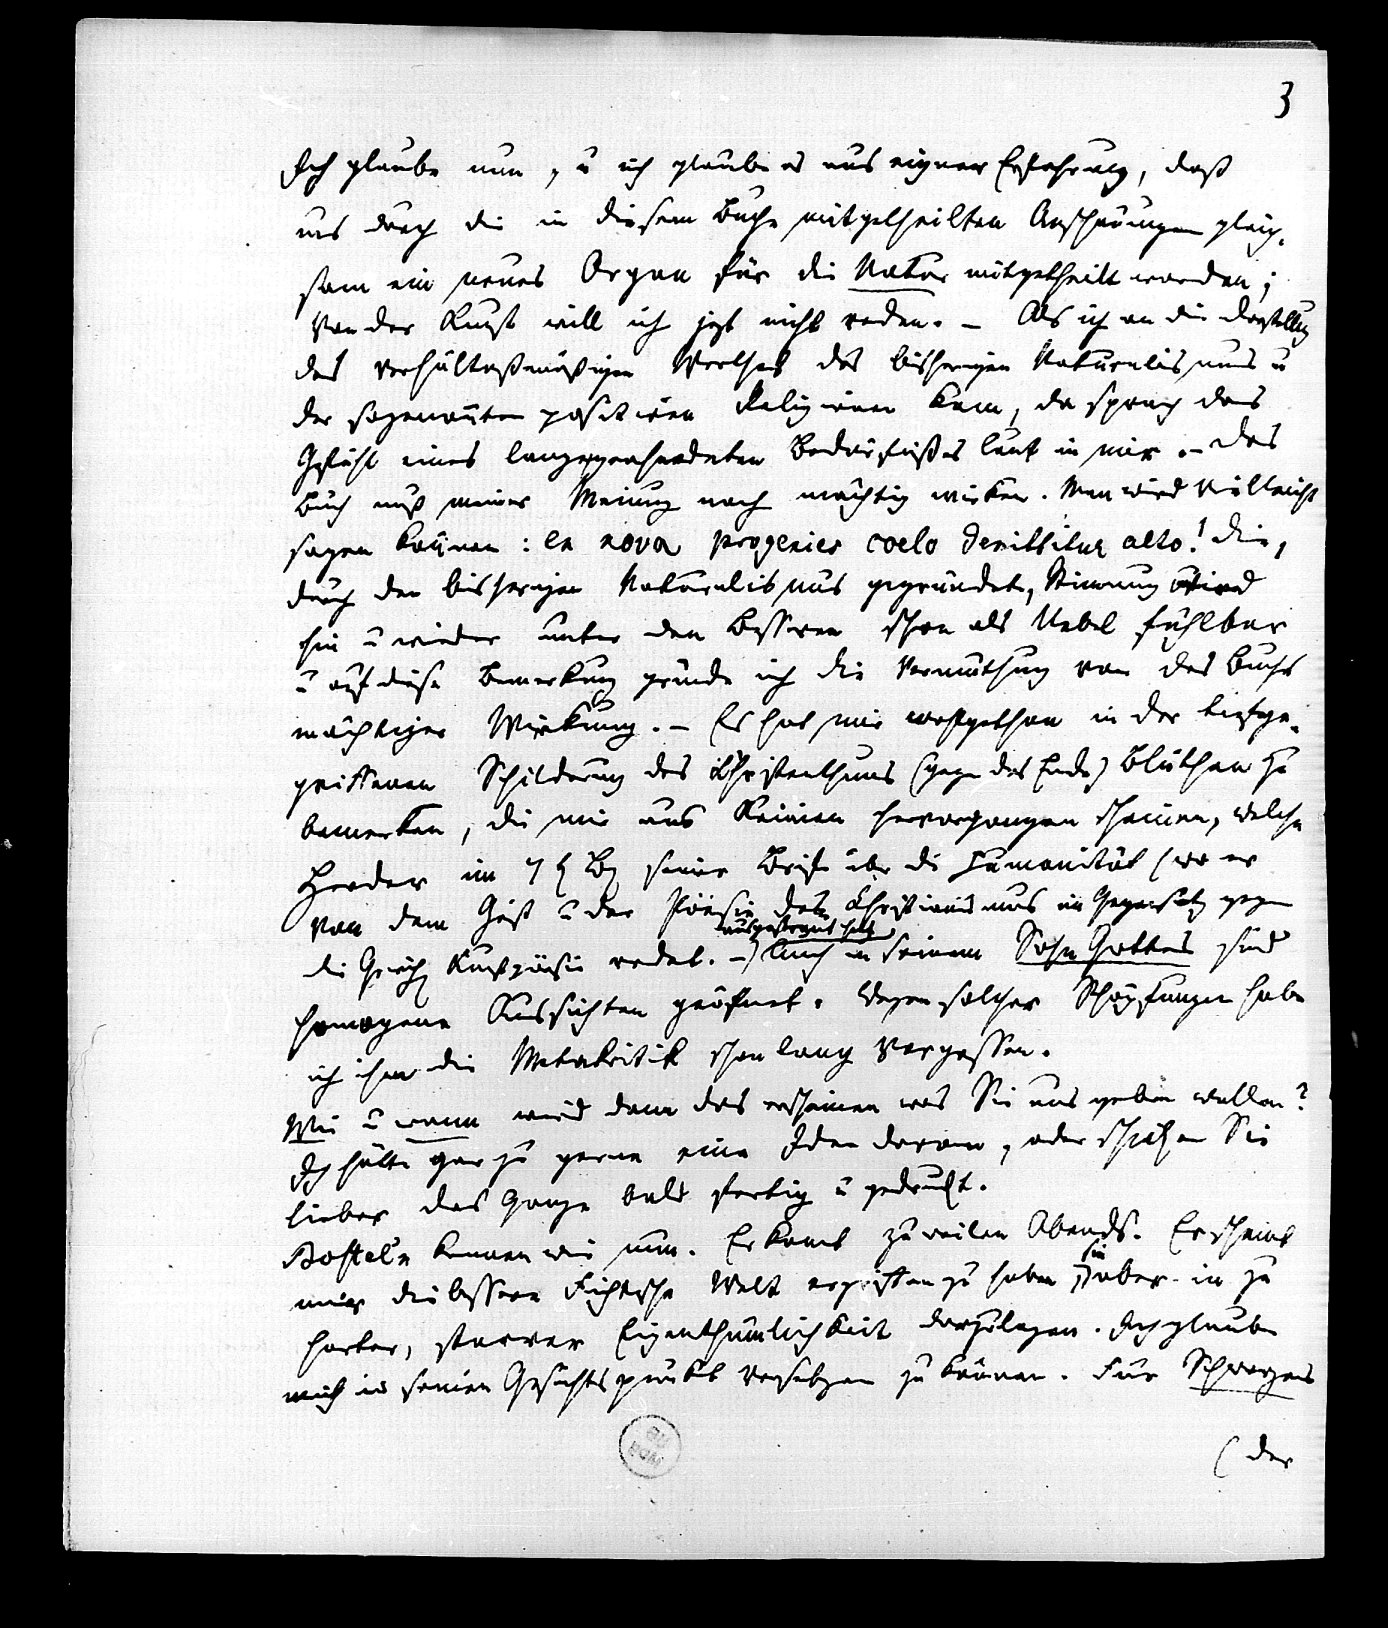 3
Ich glaube nun, u ich glaube es aus eigner Erfahrung, daß
uns durch die in diesem Buche mitgetheilten Anschauungen gleich¬
sam ein neues Organ für die Natur mitgetheilt worden;
Von der Kunst will ich jezt nicht reden. – Als ich an die Darstellung
des verhältnißmäßigen Werthes des bisherigen Naturalismus u
der sogenannten positiven Religionen kam, da sprach das
Gefühl eines langgeahndeten Bedürfnißes laut in mir. – Das
Buch muß meiner Meinung nach mächtig wirken. Man wird vielleicht
sagen können: en nova progenies coelo demittitur alto! Die,
durch den bisherigen Naturalismus gegründete, Stimmung wird
hin u wieder unter den Bessren schon als Uebel fühlbar
u auf diese Bemerkung gründe ich die Vermuthung von des Buchs
mächtiger Wirkung. – Es hat mir wohlgethan in der tiefge¬
griffenen Schilderung des Christenthums (gegen das Ende) Blüthen zu
bemerken, die mir aus Keimen hervorgegangen scheinen, welche
Herder im 7 seiner Briefe über die Humanität (wo er
von dem Geist u der Poesie des Christianismus im Gegensatz gegen
ausgestreut hat
die Griech Kunstpoesie redet. –) Auch in seinem Sohn Gottes sind
homogene Aussichten geöfnet. Wegen solcher Schöpfungen habe
ich ihm die Metakritik schon lang vergessen.
Wie u wann wird denn das erscheinen was Sie uns geben wollen?
Ich hätte gar zu gerne eine Idee davon, oder schicken Sie
lieber das Ganze bald fertig u gedruckt.
Kosteln kennen wir nun. Er komt zuweilen Abends. Er scheint
sie
mir die bessere Fichtsche Welt ergriffen zu haben aber in zu
harter, starrer Eigenthümlichkeit darzulegen. Ich glaube
mich in seinen Gesichtspunkt versetzen zu können. Für Schwarzens
(der